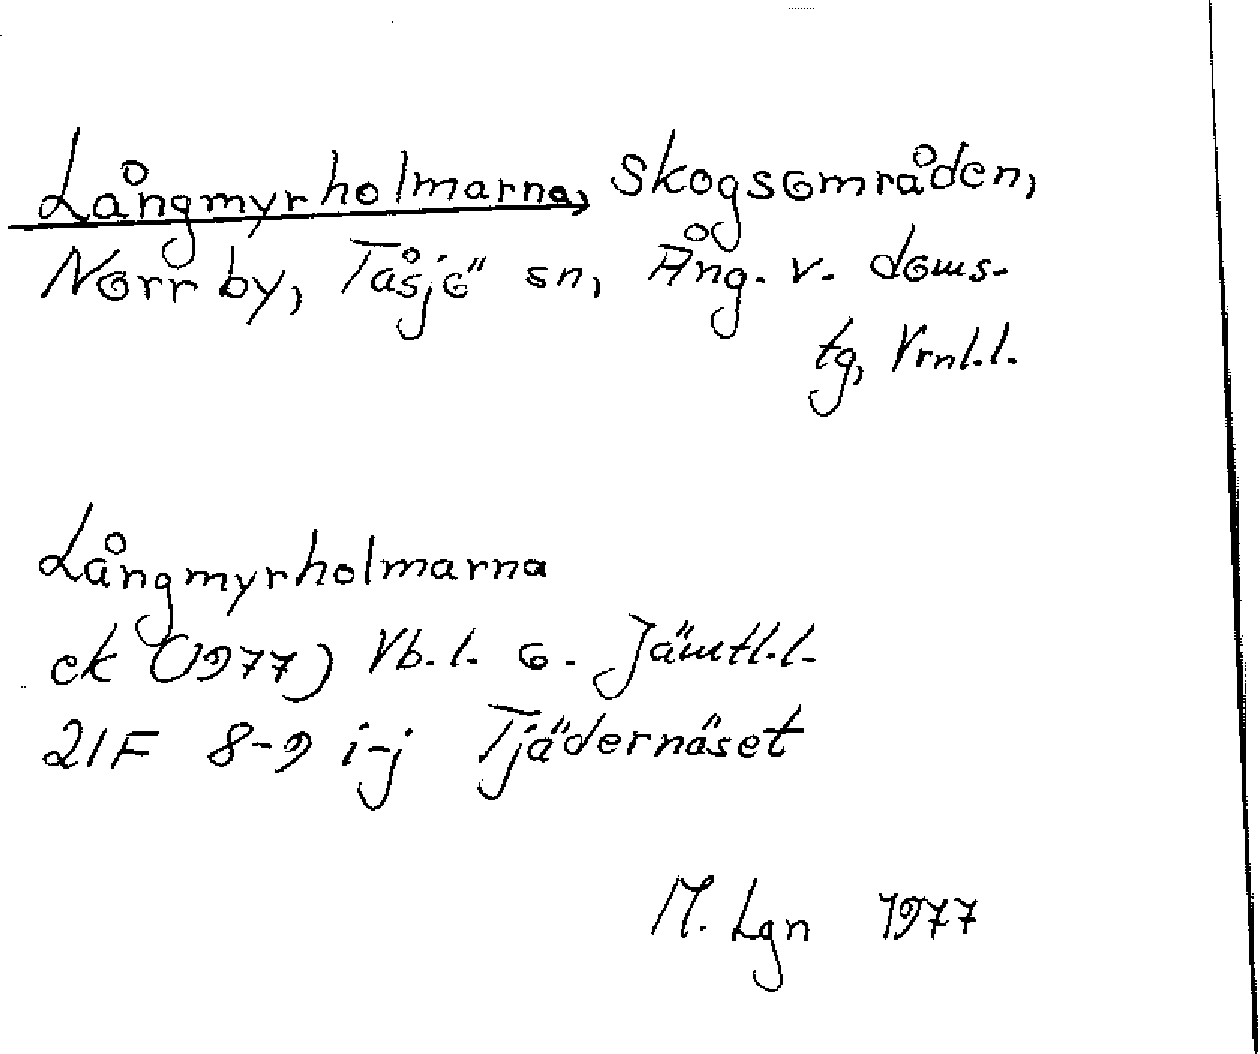 Långmyrholmarna, skogsområden,
Norrby, Tåsjö sn, Ång. v. doms-
tg, Vrnl.l.
Långmyrholmarna
ek (1977) Vb.l. o. Jämtl.l.
21F 8-9 i-j Tjädernäset
M. Lgn 1977